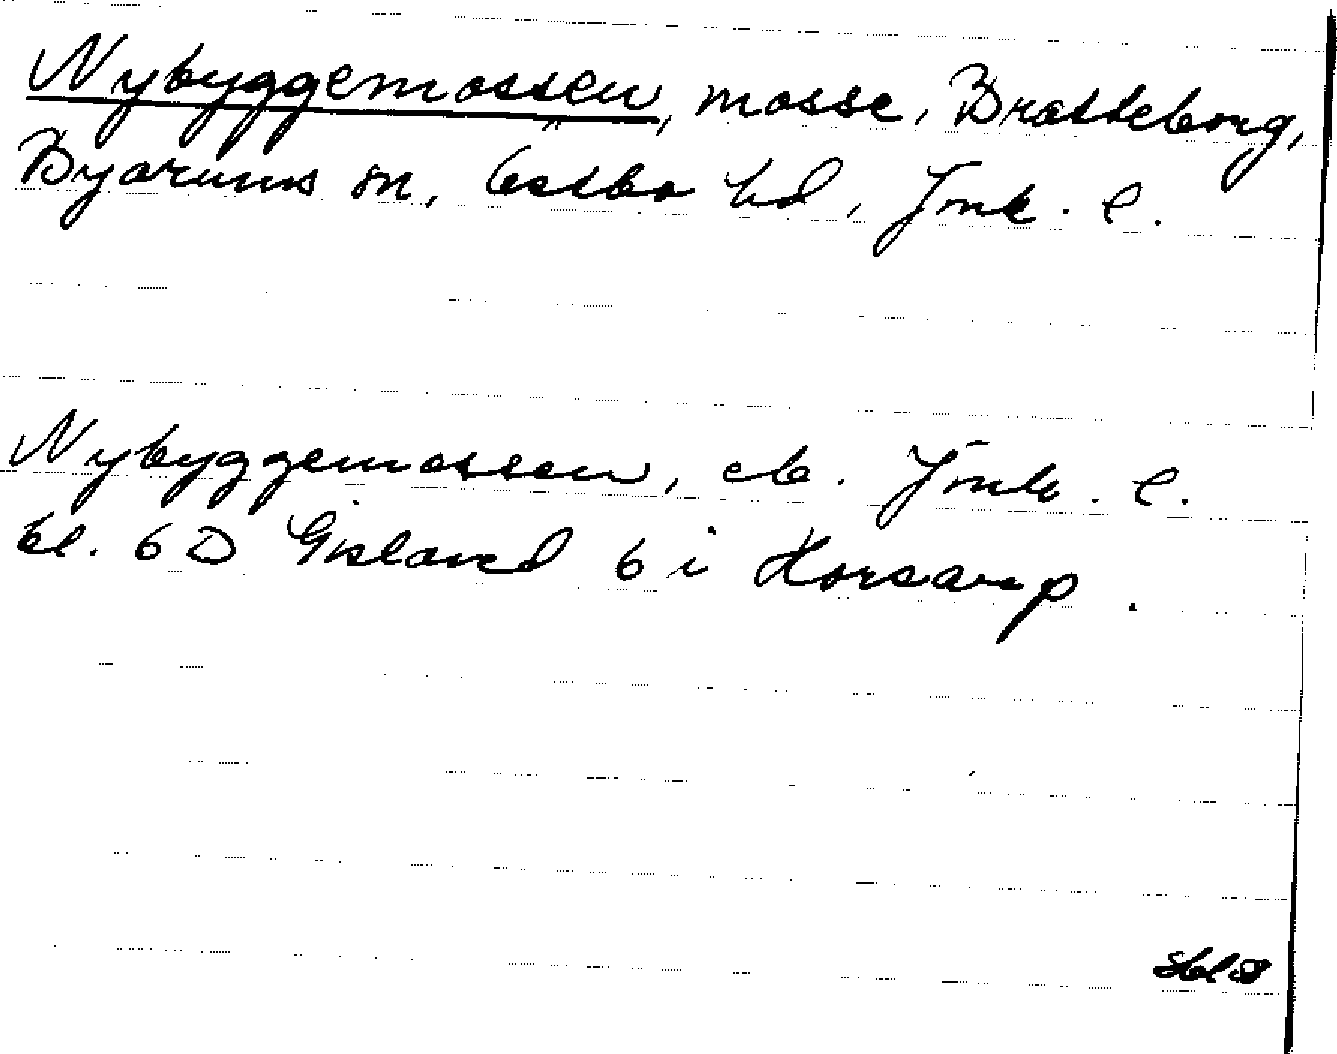 Nybyggemossen, mosse, Bratteborg,
Byarums sn, Östbo hd, Jönk. l.
Nybyggemossen, ek. Jönk. l.
bl. 6 D Gislaved 6 i Horsaryp.